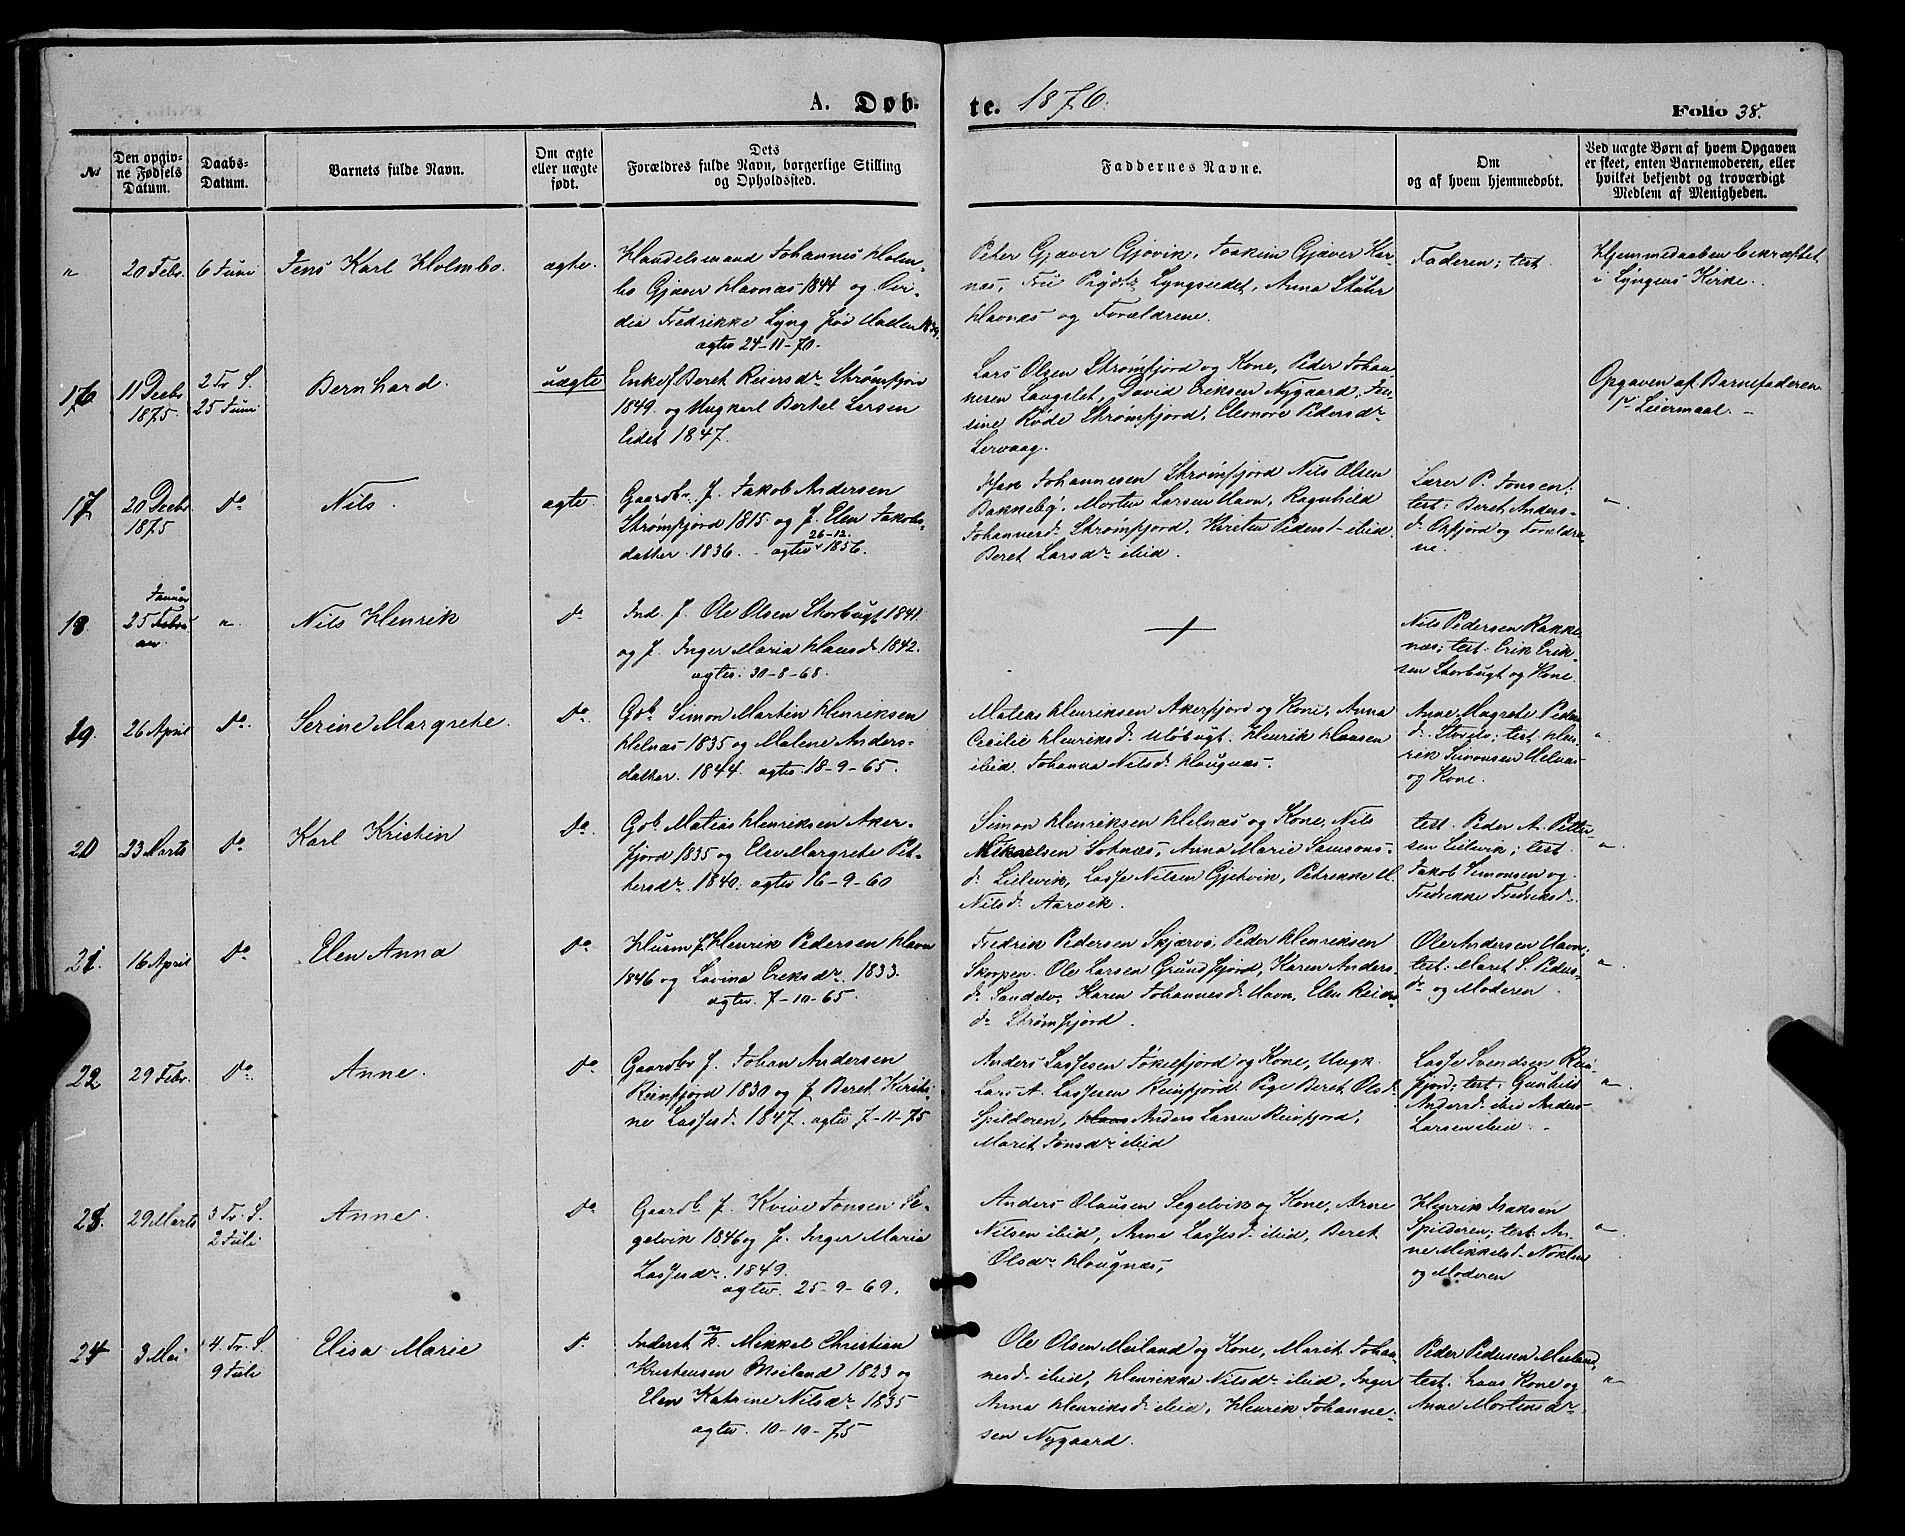 A. Døb-
te. 1876.
Folio 38.
№
Den opgiv-
ne Fødsels
Datum.
Daabs-
Datum.
Barnets fulde Navn.
Om ægte
eller uægte
født.
Dets
Forældres fulde Navn, borgerlige Stilling
og Opholdssted.
Faddernes Navne.
Om
og af hvem hjemmedøbt.
Ved uægte Børn af hvem Opgaven
er skeet, enten Barnemoderen, eller
hvilket bekjendt og troværdigt
Medlem af Menigheden.
"
20 Febr.
6 Juni
Jens Karl Holmbo.
ægte.
Handelsmand Johannes Holm-
bo Gjæver Havnæs 1844 og
dia Fredrikke Lyng fød
agtev 24-11-70.
Peter Gjæver Gjøvik, Joakim Gjæver Hav-
næs, Lyngseidet, Anna
Havnæs og Forældrene.
Faderen; test.
Hjemmedaaben bekræftet
i Lyngens Kirke.
176
11 Decbr
1875
2 Tr. S.
25 Juni
Bernhard.
uægte
Enke f. Beret Reiersdr. Strømfjord
1849. og Ungkarl Bertel Larsen
Eidet 1847.
Lars Olsen Strømfjord og Kone, Peder Johan-
nesen David Eriksen Nygaard,
Strømfjord, Eleonore Pedersdr
Lervaag.
Opgaven af Barnefaderen
1ste Leiermaal.
17
20 Decbr
1875
do
Nils.
ægte.
Gaardbr. f. Jakob Andersen
Strømfjord 1815 og f. Elen Jakobs-
datter 1836. agtev 26-12-1856.
Isak Johannesen Strømfjord Nils Olsen
Bakkeby, Morten Larsen Havn, Ragnhild
Johannesd. Strømfjord, ibid.
Beret Larsdr ibid.
Lærer P. Jonsen;
test: Beret Anders-
d. Oxfjord og Foræld-
ne.
"
18.
Januar
25 Febru
ar
"
Nils Henrik
do
Ind. f. Ole Olsen Storbugt 1841.
og f. Inger Maria Hansd. 1842.
agtev. 30-8-68.
+
Nils Pedersen Rakke
næs; test: Erik Erik-
sen Storbugt og Kone.
19.
26 April
do.
Serine Margrete.
do.
Gbr. Simon Martin Henriksen
Helnæs 1835 og Malene Anders-
datter. 1844. agtev 18-9-65.
Matias Henriksen Akerfjord og Kone, Anna
Cecilie Henriksd. Uløbugt. Henrik Hansen
ibid. Johanna Nilsd. Hougnæs.
Anne Magrete Peder
d. test Hen-
rik Simonsen Helnæs
og Kone.
"
20
23 Marts
do
Karl Kristin
do.
Gbr. Matias Henriksen Aker-
fjord 1835 og Else Margrete Pet-
tersdr. 1840. agtev 16-9-60
Simon Henriksen Helnæs og Kone, Nils
Mikaelsen Sotnæs, Anna Marie Samsons-
d. Lilevik, Lasse Nilsen Gjetvik, Petrikke M.
Nilsd. Aarvik.
test. Peder A. Petter-
sen Lilevik; test
Jakob Simonsen og
Fredrikke Fredriksd.
"
21.
16 April
do
Elen Anna
do
Husm f. Henrik Pedersen Havn
1846 og Lovina Eriksdr. 1833.
agtev. 7-10-65.
Fredrik Pedersen Skjærvø, Peder Henriksen
Skorpen. Ole Larsen Grundfjord, Karen Anders-
d. Karen Johannesd. Havn, Elen Reiers-
dr Strømfjord.
Ole Andersen Havn,
test: Marit S. Peders-
dr og Moderen.
"
22
29 Febr.
do.
Anne.
do
Gaardbr f. Johan Andersen
Reinfjord 1830 og f. Beret Kirsti-
ne Lassesd. 1847. agtev 7-11-75
Anders Lassesen Jøkelfjord og Kone, Ungk.
Lars A. Lassesen Reinfjord. Pige Beret Olsd.
Spilderen, Hans Anders Larsen Reinfjord,
Marit Jonsdr ibid
Lasse Svendsen Rein
fjord; test: Gunhild
Andersd. ibid Anders
Larsen ibid.
"
23.
29 Marts
3 Tr. S.
2 Juli
Anne.
do
Gaardbr. f. Jonsen Se-
gelvik 1846 og f. Inger Maria
Lassesdr. 1849.
agtev. 25-9-69.
Anders Olausen Segelvik og Kone, Arne
Nilsen ibid, Anne Lassesd. ibid, Beret
Olsdr Hougnæs,
Henrik Isaksen
Spilderen; test: An-
ne Mikkelsd.
og Moderen
"
24
3 Mai
4. Tr. S.
9 Juli
Elisa Marie
d.
Mikkel Christian
Kristensen Meiland 1823 og
Elen Katrine Nilsdr 1835
agtev. 10-10-75
Ole Olsen Meiland og Kone, Marit Johan-
nesd. ibid, Henrikka Nilsdr ibid, Inger
Anna Henriksd. ibid, Henrik Johanne-
sen Nygaard.
Peder Pedersen Meiland,
test. hans Kone og
Anne Mortensdr
"